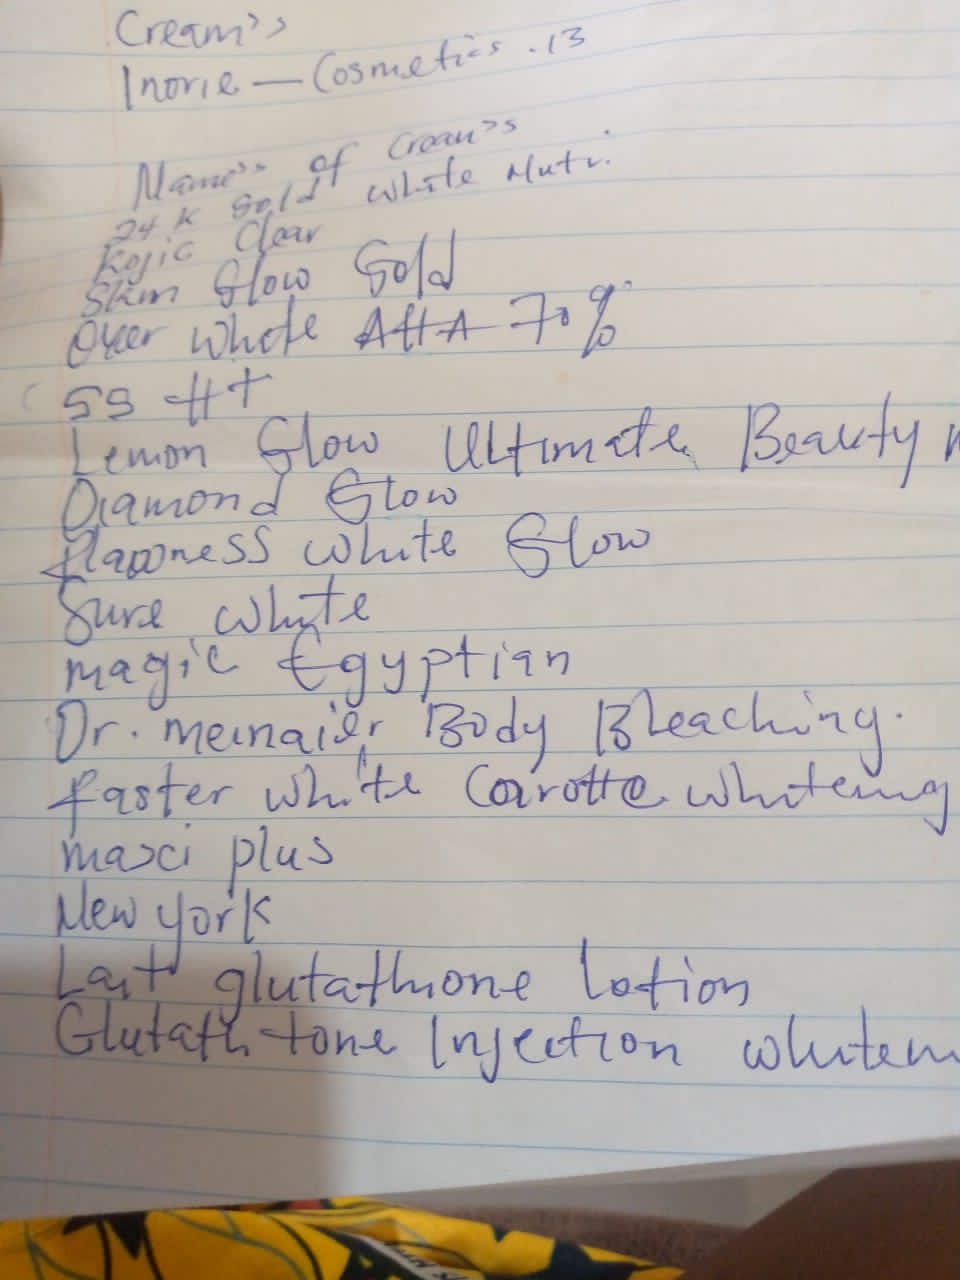 Cream's
Inorie — Cosmetics .13
Name's of Crean's
24 K Gold white Nutr.
Kojic Clear
Skin Glow Gold
Over White AHA 70%
59 H+
Lemon Glow Ultimate Beauty
Diamond Glow
flawness white Glow
Sure White
magic Egyptian
Dr. meinaier Body Bleaching.
faster white Carotte whitening
maxi plus
New york
Lait glutathione lotion
Glutathtone Injection whiten